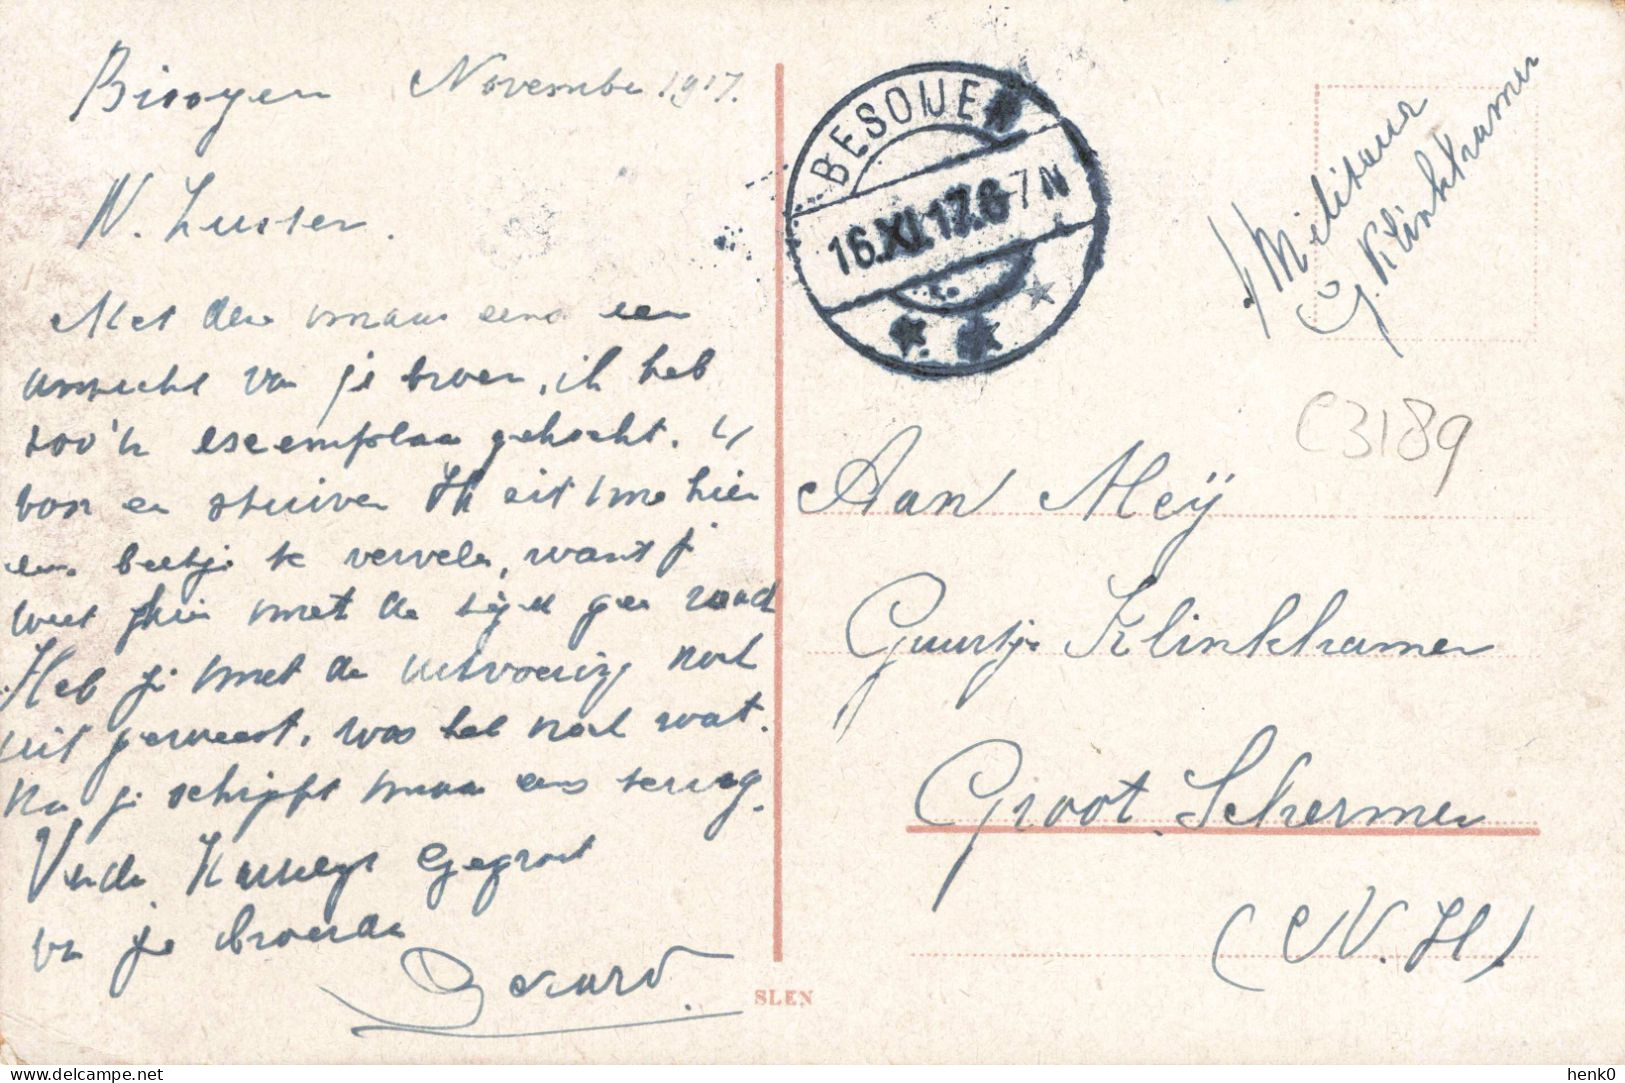 November 1917.
N. Zuster.
Met deze maar eens een
ansicht van je broer, ik heb
zoo'n exemplaar gekocht. 4
voor een stuiver Ik zit me hier
een beetje te vervelen, want je
weet hier met de tijd geen raad
Heb je met de uitvoering nog
uit geweest, was het nog wat.
Nu je schijft maar eens terug.
Verder Gegroet
van je broeder
Gerard.
BESOIJEN
16.XI.17.6-7N
Militair
G. Klinkhamer
C3189
Aan Mej
Guurtje Klinkhamer
Groot. Schermer
(N.H.)
SLEN
© Delcampe
henk0